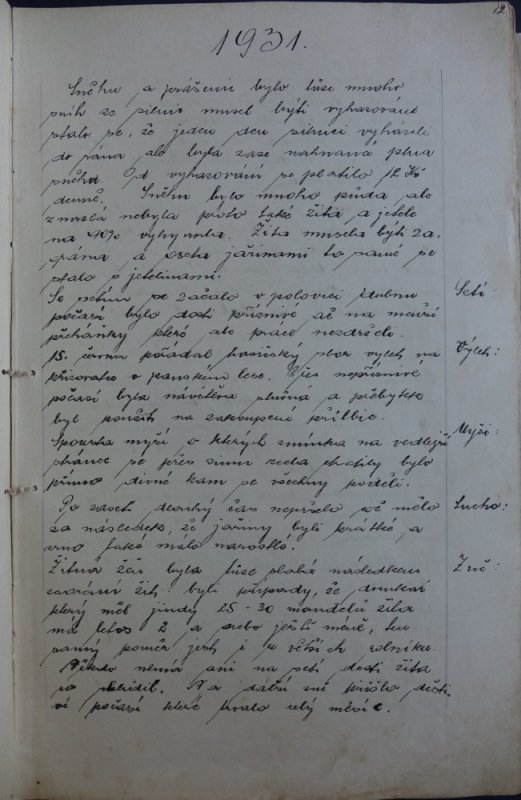 12
1931.
Sněhu a jerášenic bylo tuze mnoho
sníh ze silnic musel býti vyhazován
stalo se, že jeden den silnici vyházeli
do rána ale byla zase nahnaná plna
sněhu. Od vyhazování se platilo 12 Kč
denně. Sněhu bylo mnoho půda ale
zmrzlá nebyla proto také žita a jetele
na 90% vyhynula. Žita musela býti za-
orána a oseta jařinami to samé se
stalo s jetelinami.
Se setím se začalo v polovici dubna Setí:
počasí bylo dosti příznivé až na menší
přeháňky které ale práce nezdržely.
15. června pořádal hasičský sbor výlet na Výlet:
křižovatce v panském lese. Přes nepříznivé
počasí byla návštěva slušná a přebytek
byl použit na zakoupení přilbic.
Spousta myší o kterých zmínka na vedlejší Myši:
stránce se přes zimu zcela ztratily bylo
přímo divné kam se všechny poděli.
Po zaseti dlouhý čas nepršelo což mělo Sucho:
za následek, že jařiny byli krátké, a
zrno také málo narostlé.
Žitná žeň byla tuze slabá následkem Žně:
zaorání žit: byli případy, že domkař
který měl jindy 25 - 30 mandelů žita
má letos 2 a nebo ještě méně, ten
samý poměr jest i u větších rolníků.
Někdo nemá ani na setí dosti žita
co sklidil. Na další žně přišlo dešti-
vé počasí které trvalo celý měsíc.